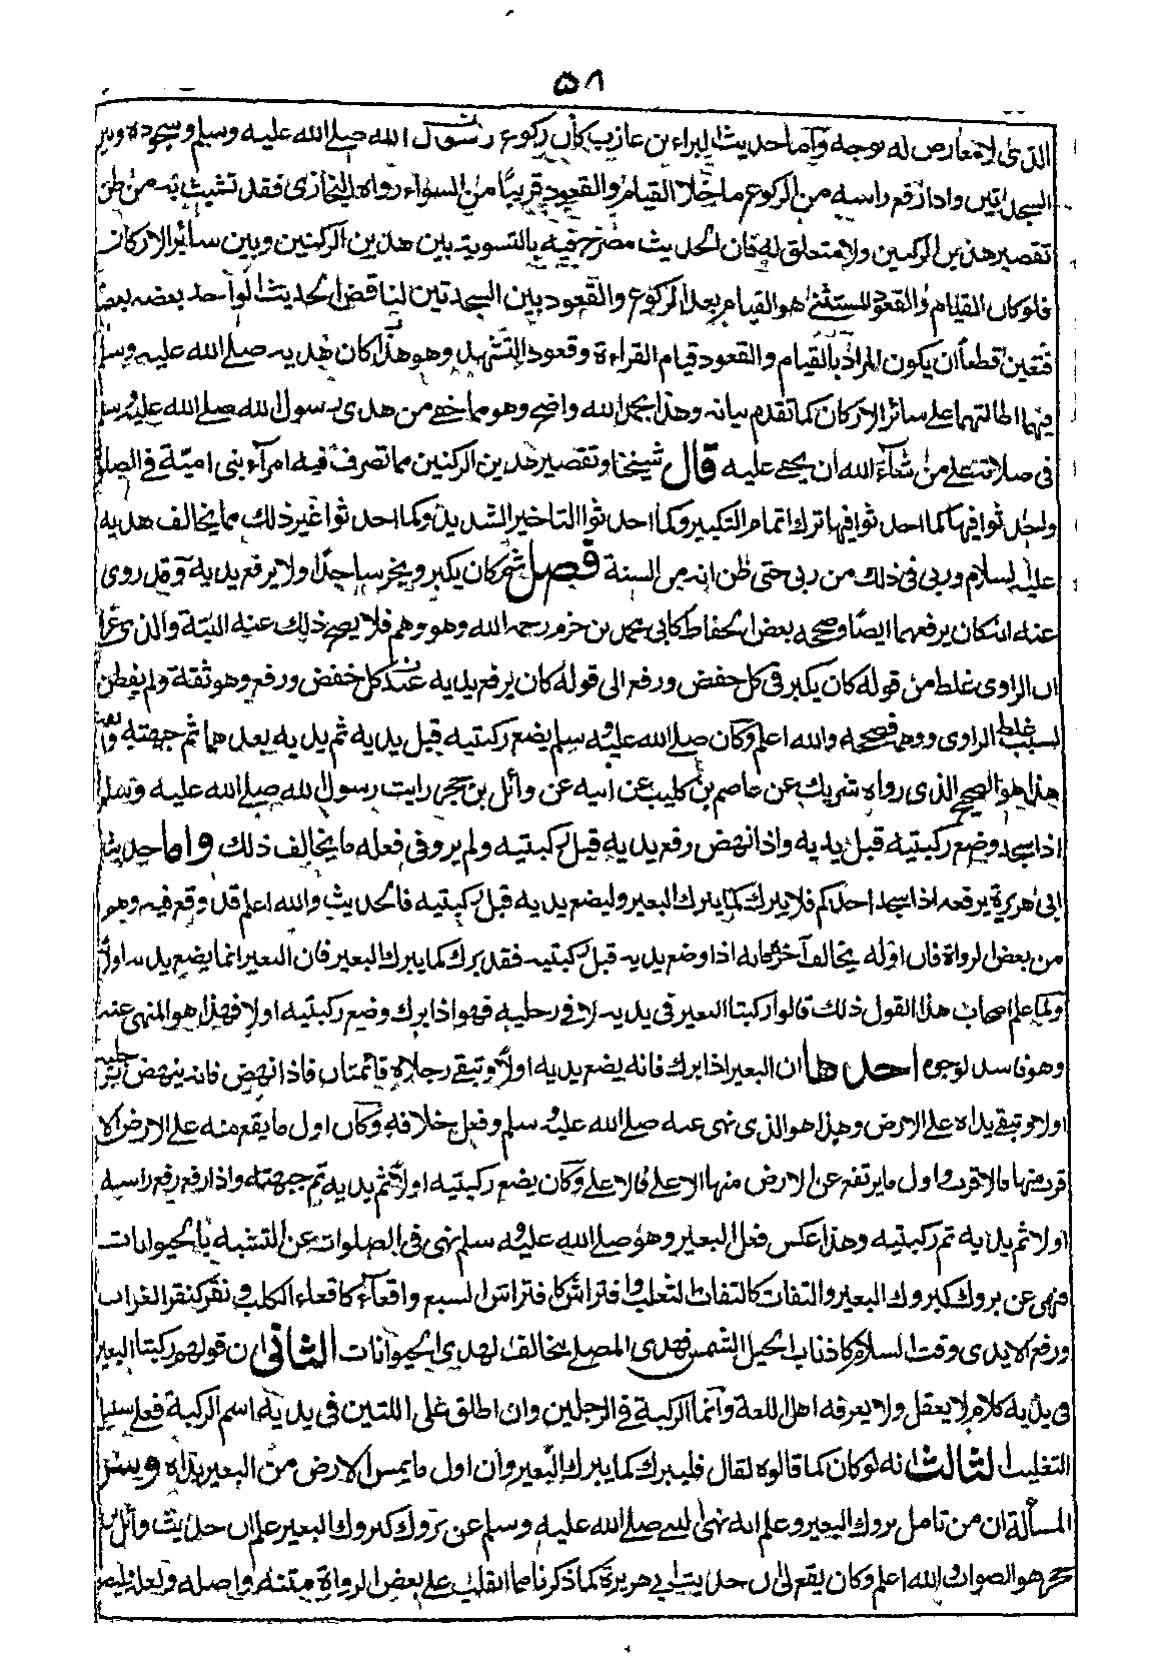 ٥٨
الذى لا معارض له بوجه وأما حديث البراء بن عازب كان ركوع رسول الله صلے الله عليه وسلم وسجوده وبين
السجدتين واذا رفع راسه من الركوع ما خلا القيام والقعود قريبًا من السواء رواه البخارى فقد تشبث به من ظن
تقصير هذين الركنين ولا متعلق له فان الحديث مصرح فيه بالتسوية بين هذين الركنين وبين سائر الاركان
فلو كان القيام والقعود المستثنى هو القيام بعد الركوع والقعود بين السجدتين لناقض الحديث الواحد بعضه بعضا
فتعين قطعاً ان يكون المراد بالقيام والقعود قيام القراءة وقعود التشهد وهو هذا كان هديه صلے الله عليه وسلم
فيهما اطالتهما علے سائر الاركان كما تقدم بيانه وهذا بحمد الله واضح وهو مما خفے من هدى رسول الله صلے الله عليه وسلم
فى صلاته علے من شآء الله ان يخفے عليه قال شيخنا وتقصير هذين الركنين مما تصرف فيه امرآء بنى امية فے الصلوة
واحدثوا فيها كما احدثوا فيها ترك اتمام التكبير وكما احدثوا التاخير الشديد وكما احدثوا غير ذلك مما يخالف هديه
عليه السلام وربى فى ذلك من ربى حتى ظن انه من السنة فصل ثم كان يكبر ويخر ساجدًا ولا يرفع يديه وقد روى
عنه انه كان يرفعهما ايضًا وصححه بعض الحفاظ كابى محمد بن حزم رحمه الله وهو وهم فلا يصح ذلك عنه البتة والذى غره
ان الراوى غلط من قوله كان يكبر فى كل خفض ورفع الى قوله كان يرفع يديه عند كل خفض ورفع وهو ثقة ولم يفطن
لسبب غلط الراوى ووهمه فصححه والله اعلم وكان صلے الله عليه وسلم يضع ركبتيه قبل يديه ثم يديه بعدهما ثم جبهته وانفه
هذا هو الصحيح الذى رواه شريك عن عاصم بن كليب عن ابيه عن وائل بن حجر رايت رسول الله صلے الله عليه وسلم
اذا سجد وضع ركبتيه قبل يديه واذا نهض رفع يديه قبل ركبتيه ولم يرو فى فعله ما يخالف ذلك واما حديث
ابى هريرة يرفعه اذا سجد احدكم فلا يبرك كما يبرك البعير وليضع يديه قبل ركبتيه فالحديث والله اعلم قد وقع فيه وهم
من بعض الرواة فان اوله يخالف آخره فانه اذا وضع يديه قبل ركبتيه فقد برك كما يبرك البعير فان البعير انما يضع يديه اولاً
ولما علم اصحاب هذا القول ذلك قالوا ركبتا البعير فى يديه لا فى رجليه فهو اذا برك وضع ركبتيه اولا فهذا هو المنهى عنه
وهو فاسد لوجوه احدها ان البعير اذا برك فانه يضع يديه اولاً وتبقے رجلاه قائمتان فاذا نهض فانه ينهض برجليه
اولا وتبقے يداه علے الارض وهذا هو الذى نهى عنه صلے الله عليه وسلم وفعل خلافه وكان اول ما يقع منه علے الارض الا
قرب منها فالاقرب واول ما يرتفع عن الارض منها الاعلے فالاعلے وكان يضع ركبتيه اولاً ثم يديه ثم جبهته واذا رفع رفع راسه
اولا ثم يديه ثم ركبتيه وهذا عكس فعل البعير وهو صلے الله عليه وسلم نهى فى الصلوات عن التشبه بالحيوانات
فنهى عن بروك كبروك البعير والتفات كالتفات الثعلب وافتراش كافتراش السبع واقعاء كاقعاء الكلب ونقر كنقر الغراب
ورفع الايدى وقت السلام كاذناب الخيل الشمس فهدى المصلے يخالف لهدى الحيوانات الثانى ان قولهم ركبتا البعير
فى يديه كلام لا يعقل ولا يعرفه اهل اللغة وانما الركبة فے الرجلين وان اطلق على اللتين فى يديه اسم الركبة فعلے سبيل
التغليب الثالث انه لو كان كما قالوه لقال فليبرك كما يبرك البعير وان اول ما يمس الارض من البعير يداه وسر
المسألة ان من تامل بروك البعير وعلم انه نهى النبے صلے الله عليه وسلم عن بروك كبروك البعير علم ان حديث وائل بن
حجر هو الصواب والله اعلم وكان يقع لى ان حديث ابى هريرة كما ذكرنا مما انقلب علے بعض الرواة متنه واصله ولعله وليضع